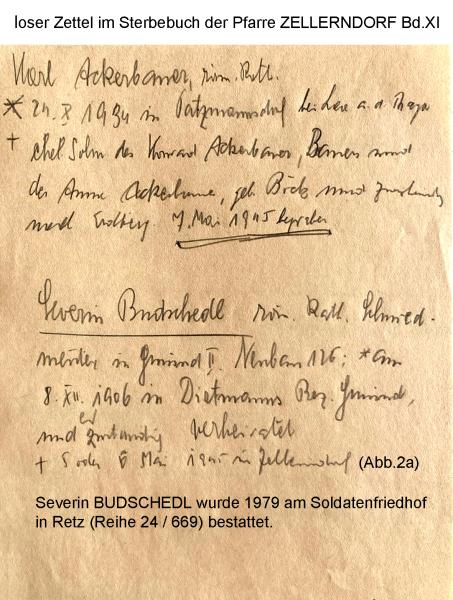 loser Zettel im Sterbebuch der Pfarre ZELLERNDORF Bd.XI
Karl Ackerbauer, röm. Kath.
* 24. X 1934 in Patzmannsdorf bei Laa a.d. Thaya
+ ehel Sohn des Konrad Ackerbauer, Bauer und
der Anna Ackerbauer, geb. und
nach 7. Mai 1945
Severin Budschedl röm. Kath. Schmied-
meister in Gmünd II. Neubau 126; * am
8. XII. 1906 in Dietmanns Bez. Gmünd,
und zuständig verheiratet
+ 5 oder 6 Mai 1945 in Zellerndorf (Abb.2a)
Severin BUDSCHEDL wurde 1979 am Soldatenfriedhof
in Retz (Reihe 24 / 669) bestattet.